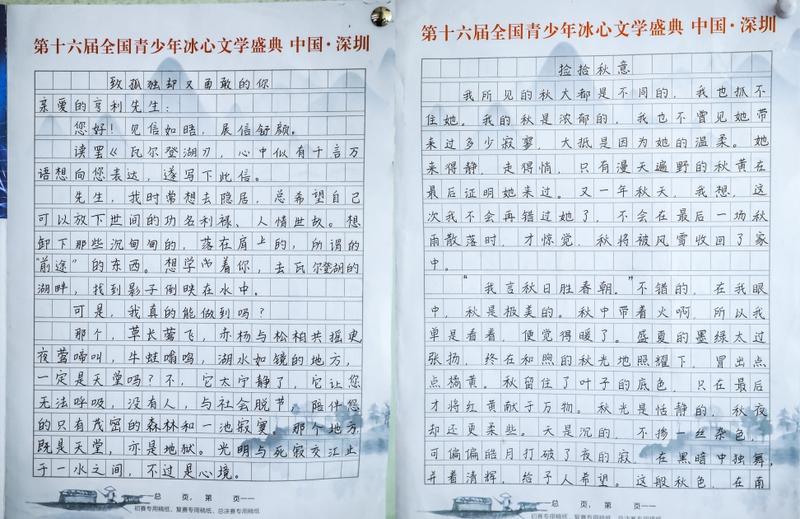 第十六届全国青少年冰心文学盛典 中国·深圳
致孤独却又勇敢的你
亲爱的亨利先生：
您好！见信如晤，展信舒颜。
读罢《瓦尔登湖》，心中似有千言万
语想向您表达，遂写下此信。
先生，我时常想去隐居，总希望自己
可以放下世间的功名利禄、人情世故。想
卸下那些沉甸甸的，落在肩上的，所谓的
“前途”的东西。想学着你，去瓦尔登湖的
湖畔，找到影子倒映在水中。
可是，我真的能做到吗？
那个，草长莺飞，赤杨与松柏共摇曳
夜莺啼叫，牛蛙嗡鸣，湖水如镜的地方，
一定是天堂吗？不，它太宁静了，它让您
无法呼吸，没有人，与社会脱节，陪伴您
的只有茂密的森林和一池寂寥，那个地方
既是天堂，亦是地狱。光明与死寂交江止
于一水之间，不过是心境。
一一总 页，第 页一一
初赛专用稿纸、复赛专用稿纸、总决赛专用稿纸
第十六届全国青少年冰心文学盛典 中国·深圳
捡拾秋意
我所见的秋大都是不同的，我也抓不
住她。我的秋是浓郁的，我也不曾见她带
来过多少寂寥，大抵是因为她的温柔。她
来得静，走得悄，只有漫天遍野的秋黄在
最后证明她来过。又一年秋天，我想，这
次我不会再错过她了，不会在最后一场秋
雨散落时，才惊觉，秋将被风雪收回了家
中。
“我言秋日胜春朝。”不错的，在我眼
中，秋是极美的。秋中带着火啊，所以我
单是看着，便觉得暖了。盛夏的墨绿太过
张扬，终在和煦的秋光地照耀下，冒出点
点橘黄。秋留住了叶子的底色，只在最后
才将红黄献于万物。秋光是恬静的，秋夜
却还更柔些。天是沉的，不掺一丝杂色，
可偏偏皓月打破了夜的寂，在黑暗中独舞，
并着清辉，给予人希望。这般秋色，在南
一一总 页，第 页一一
初赛专用稿纸、复赛专用稿纸、总决赛专用稿纸